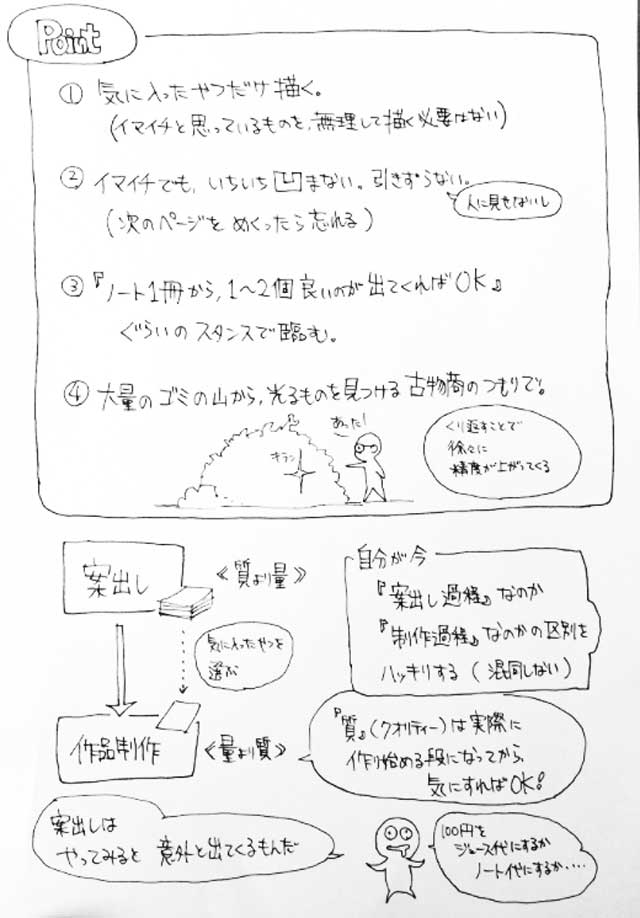 Point
① 気に入ったやつだけ描く。
(イマイチと思っているものを、無理して描く必要はない)
② イマイチでも、いちいち凹まない。引きずらない。
人に見せないし
(次のページをめくったら忘れる)
③『ノート1冊から、1〜2個良いのが出てくればOK』
ぐらいのスタンスで臨む。
④ 大量のゴミの山から、光るものを見つける古物商のつもりで。
あった!
キラン
くり返すことで
徐々に
精度が上がってくる
案出し
《質より量》
気に入ったやつを
選ぶ
作品制作
《量より質》
自分が今
『案出し過程』なのか
『制作過程』なのかの区別を
ハッキリする(混同しない)
『質』(クオリティー)は実際に
作り始める段になってから
気にすればOK!
案出しは
やってみると 意外と出てくるもんだ
100円を
ジュース代にするか
ノート代にするか・・・・